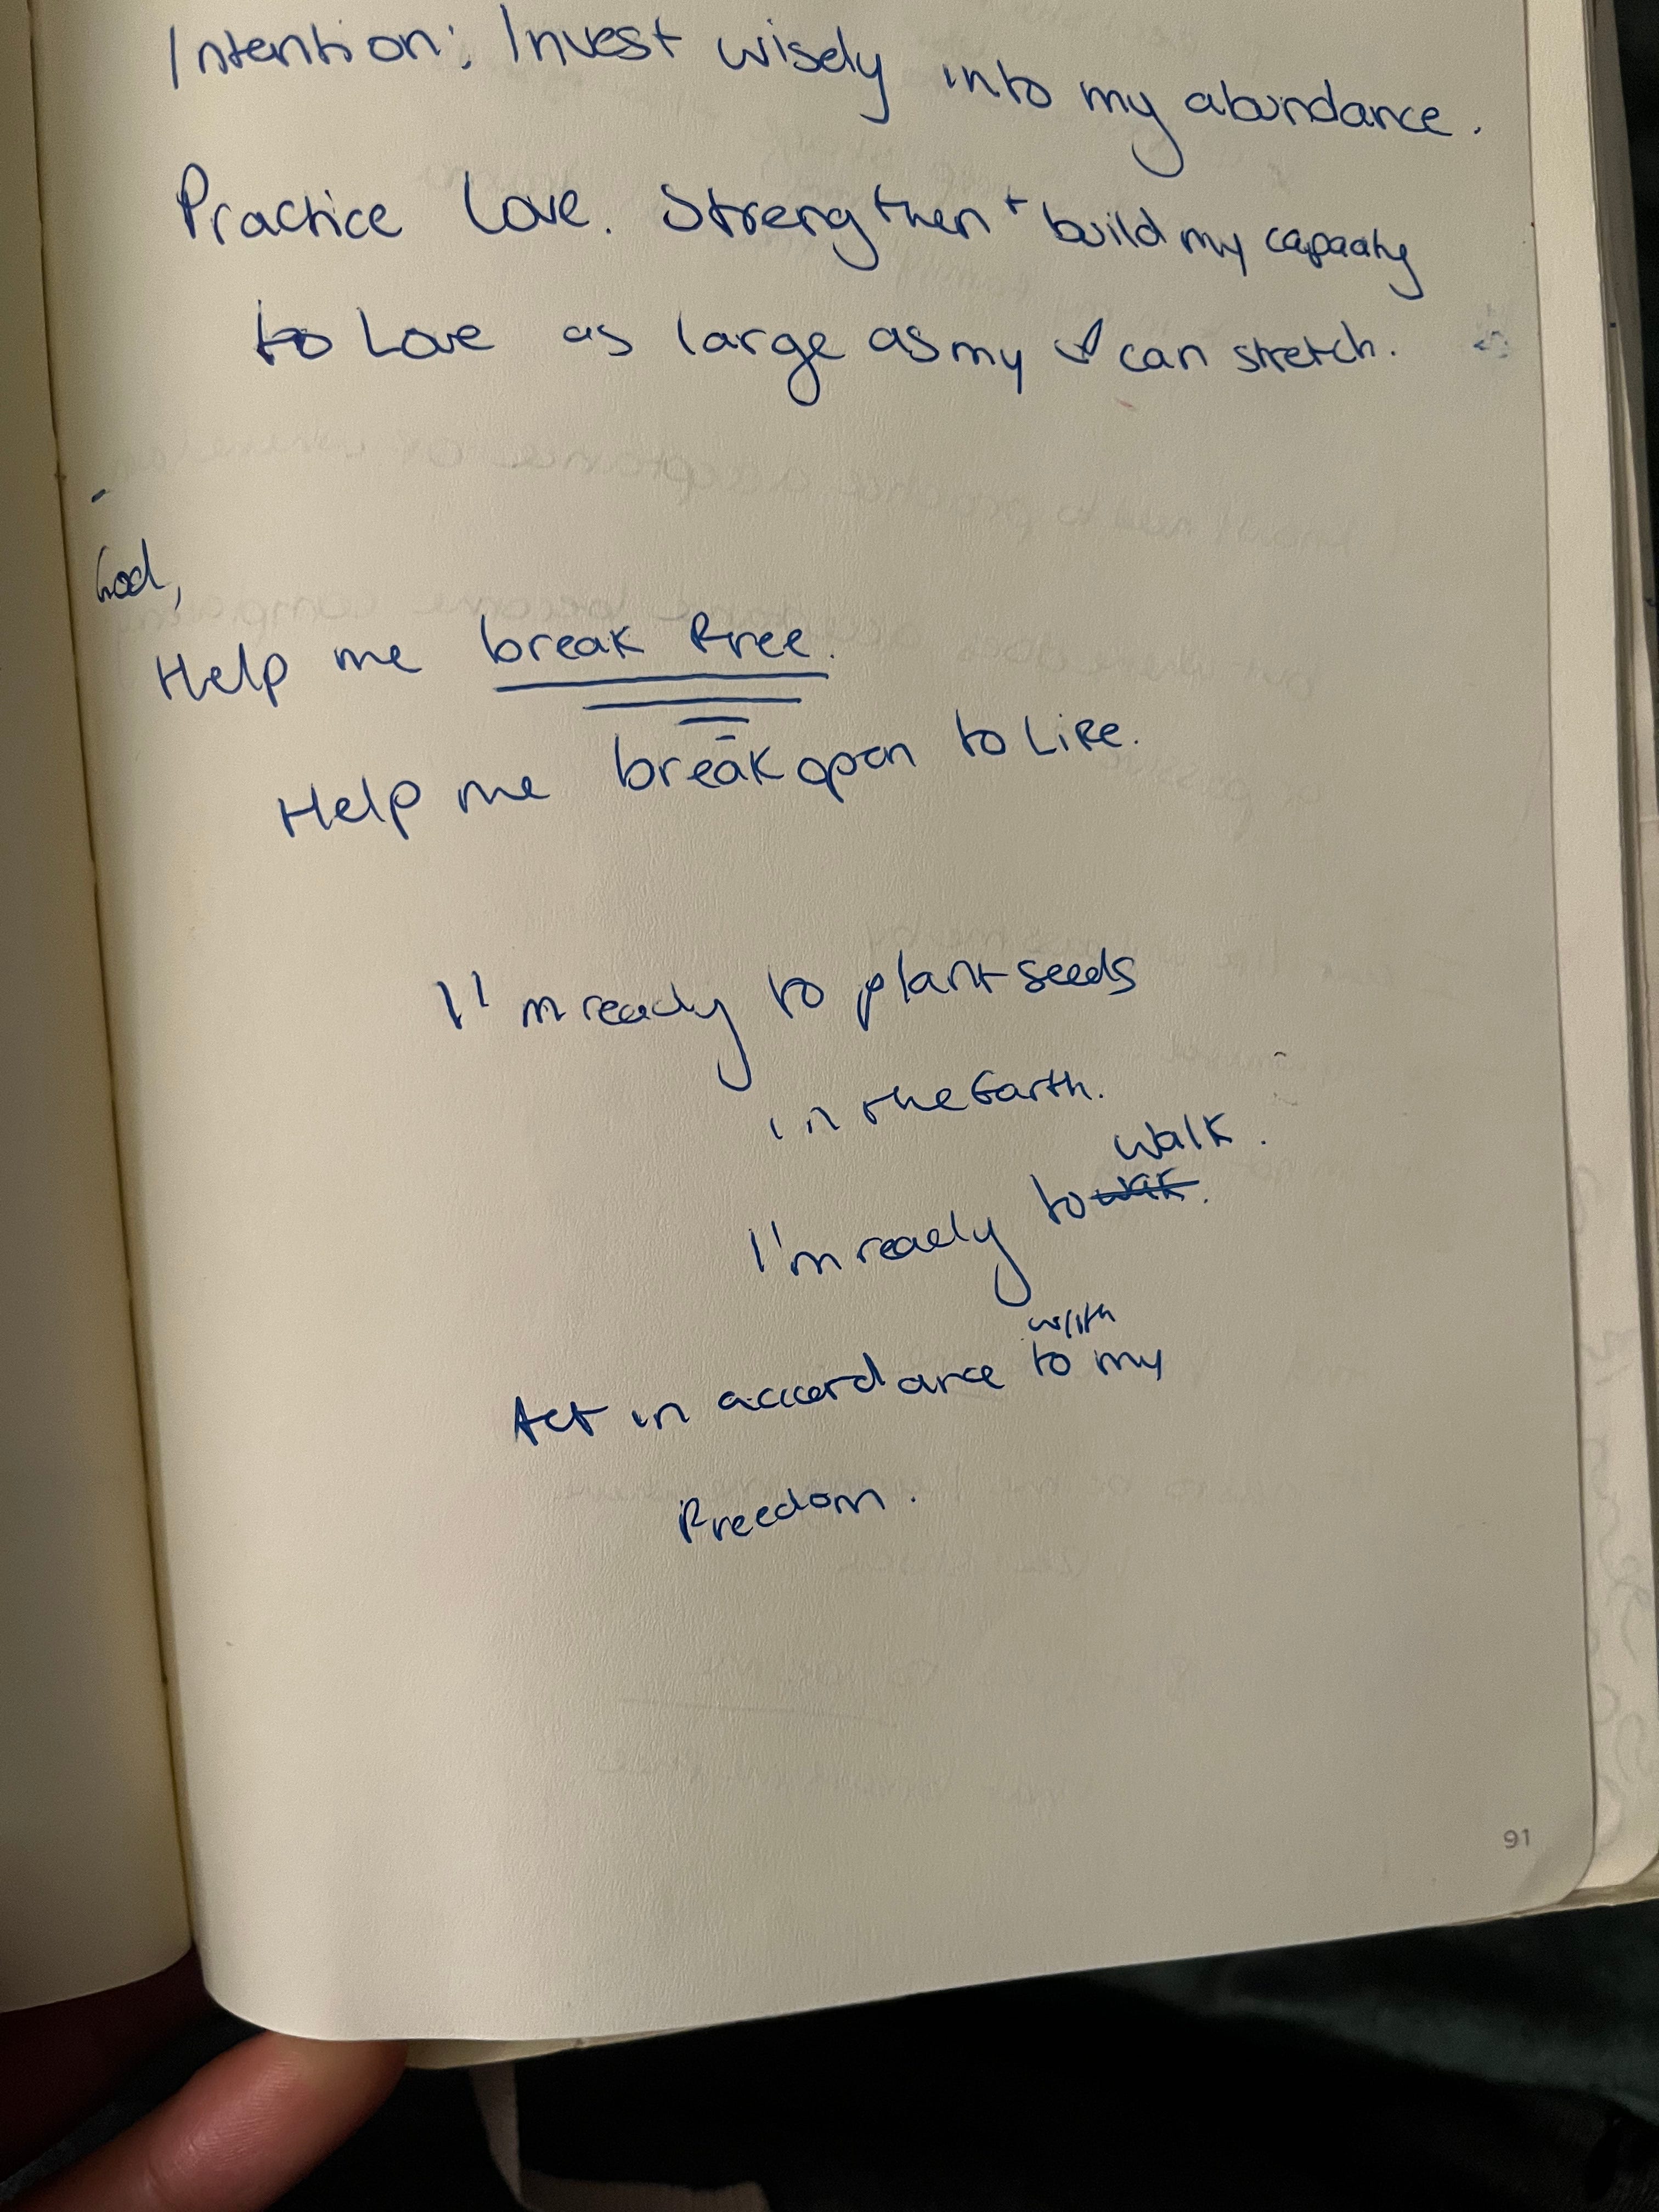 Intention: Invest wisely into my abundance.
Practice Love. Strengthen + build my capacity
to Love as large as my ♥ can stretch.
God,
Help me break free.
Help me break open to Life.
I'm ready to plant seeds
in the Earth.
walk.
I'm ready to walk.
with
Act in accordance to my
Freedom.
91